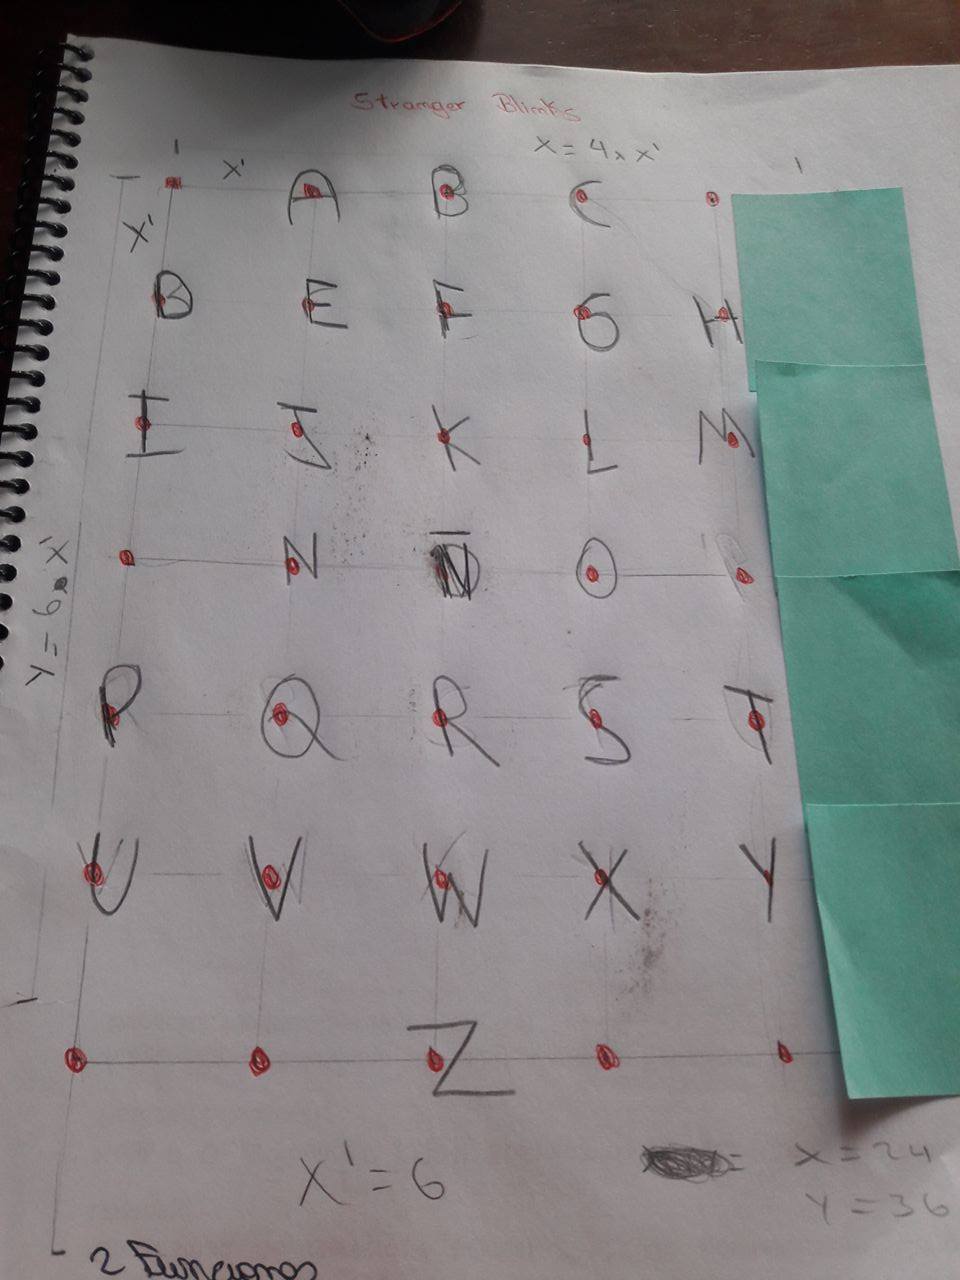 Stranger Blinks
X' X = 4 x X'
A B C
X'
D E F G H
I J K L M
N Ñ O
Y = 6 x X'
P Q R S T
U V W X Y
Z
X' = 6
X = 24
Y = 36
2 Funciones